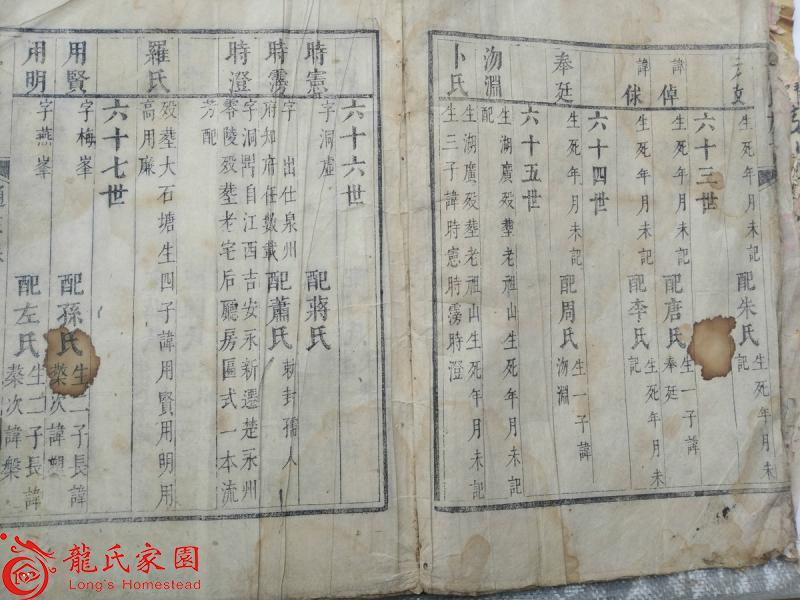 生死年月未記 配朱氏 生死年月未記
六十三世
諱倬 生死年月未記 配唐氏 生一子諱奉廷
諱俅 生死年月未記 配李氏 生死年月未記
六十四世
奉廷 生死年月未記 配周氏 生一子諱沕淵
六十五世
沕淵 生湖廣歿塟老祖山生死年月未記
配卜氏 生湖廣歿塟老祖山生死年月未記
生三子諱時憲時霶時澄
六十六世
時憲 字洞虛 配蔣氏
時霶 字 出仕泉州府知府任數載 配蕭氏 勅封孺人
時澄 字洞開自江西吉安永新遷楚永州零陵歿塟老宅后廳房區式一本流芳配
羅氏 歿塟大石塘生四子諱用賢用明用高用廉
六十七世
用賢 字梅峯 配孫氏 生二子長諱
用明 字燕峯 配左氏 生二子長諱
蔾次諱槃
龍氏家園
Long's Homestead